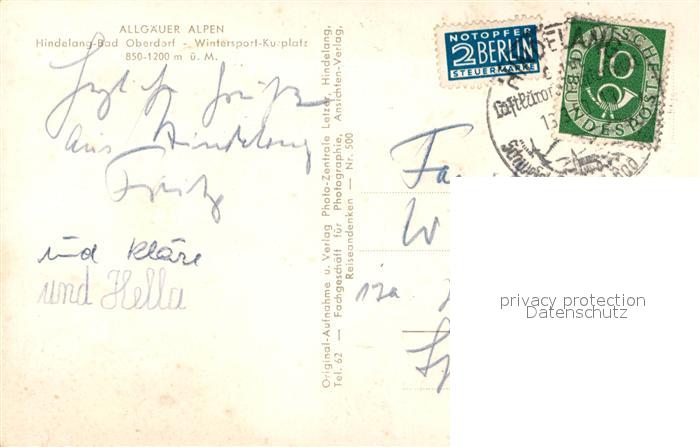 ALLGÄUER ALPEN
Hindelang-Bad Oberdorf - Wintersport-Kurplatz
850-1200 m ü. M.
Herzl. Grüße
aus Hindelang
Fritz
und Kläre
und Hella
Original-Aufnahme u. Verlag Photo-Zentrale Letzer, Hindelang,
Tel. 62 — Fachgeschäft für Photographie, Ansichten-Verlag,
Reiseandenken — Nr. 500
NOTOPFER
2 BERLIN
STEUERMARKE
DEUTSCHE
BUNDESPOST
10
Luftkurort
Fa
W
Sp
privacy protection
Datenschutz